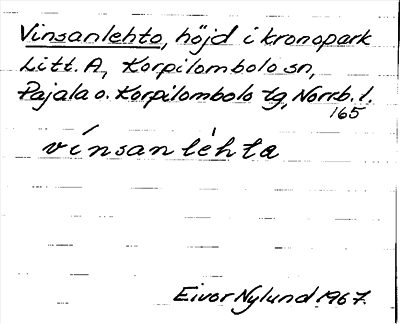 Vinsanlehto, höjd i kronopark
Litt. A, Korpilombolo sn,
Pajala o. Korpilombolo tg, Norrb. l.
165
vínsanléhta
Eivor Nylund 1967.